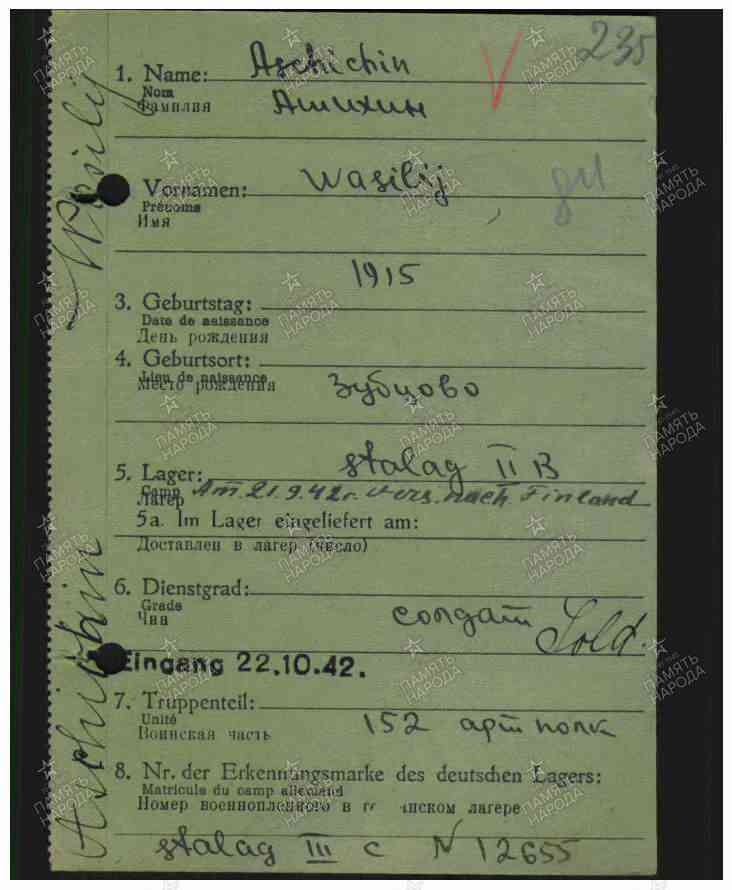 235
1. Name: Aschichin
Nom
Фамилия Ашихин
Vornamen: Wasilij
Prénoms
Имя
1915
3. Geburtstag:
Date de naissance
День рождения
4. Geburtsort:
Lieu de naissance
Место рождения Зубцово
5. Lager: Stalag II B
Camp Am 21.9.42г. vers. nach Finland
Лагерь
5a. Im Lager eingeliefert am:
Доставлен в лагерь (число)
6. Dienstgrad:
Grade
Чин солдат Sold.
Eingang 22.10.42.
7. Truppenteil:
Unité
Воинская часть 152 арт полк
8. Nr. der Erkennungsmarke des deutschen Lagers:
Matricule du camp allemand
Номер военнопленного в лагере
Stalag III C N 12655
Aschichin Wasilij
ПАМЯТЬ НАРОДА